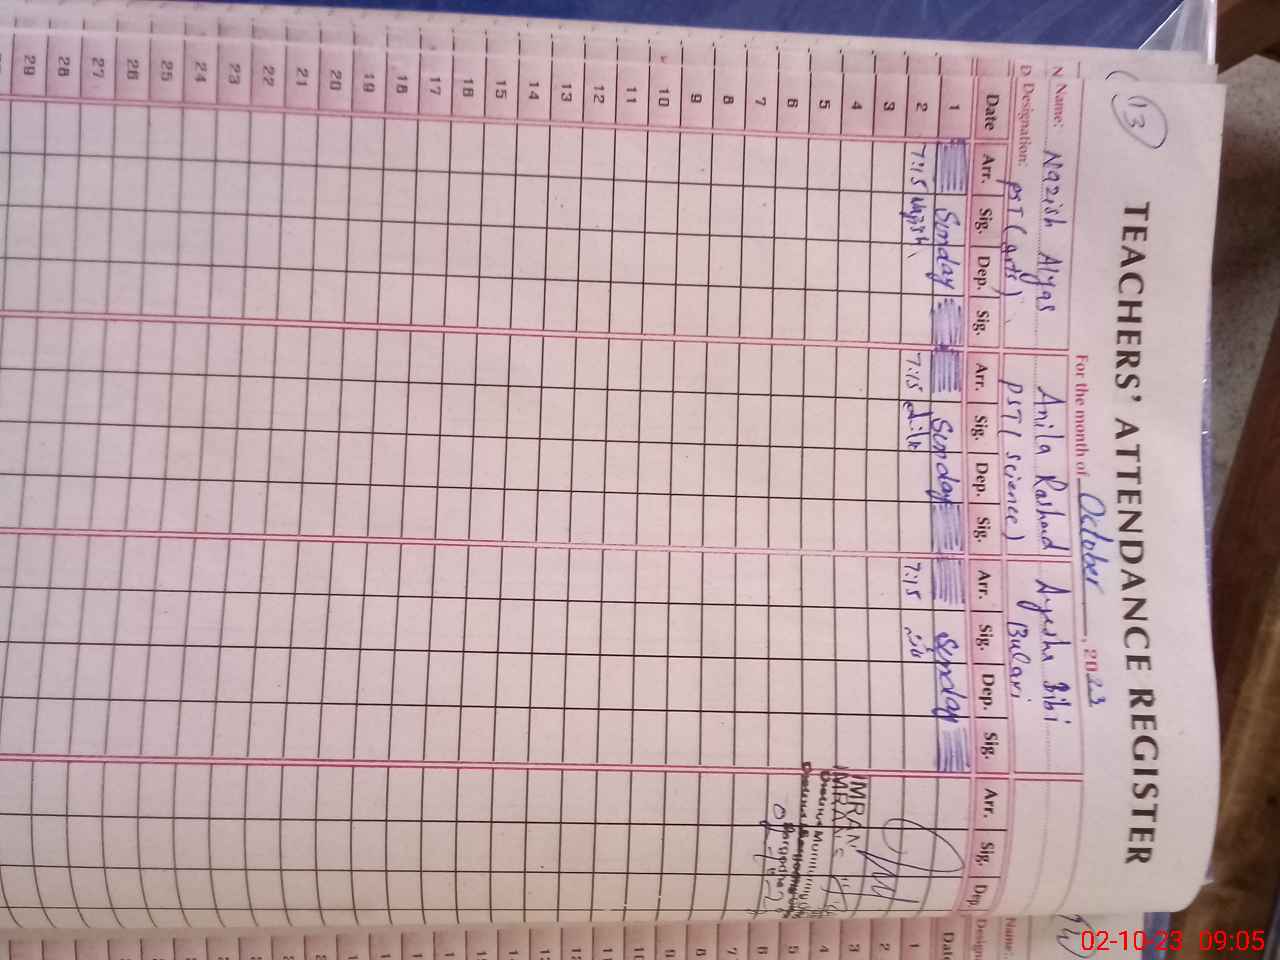 13
TEACHERS' ATTENDANCE REGISTER
For the month of October, 2023
N Name: Nazish Alyas Anila Rashaid Ayesha Bibi
D Designation: PST (arts) PST (science) Bulari
Date Arr. Sig. Dep. Sig. Arr. Sig. Dep. Sig. Arr. Sig. Dep. Sig. Arr. Sig. Dep.
1 Sunday Sunday Sunday
2 7:15 Nazish 7:15 7:15
3
4 IMRAN
5
6
7
8
9
10
11
12
13
14
15
16
17
18
19
20
21
22
23
24
25
26
27
28
29
Name:
Design
Date
1
2
3
4
5
6
7
8
9
10
11
02-10-23 09:05